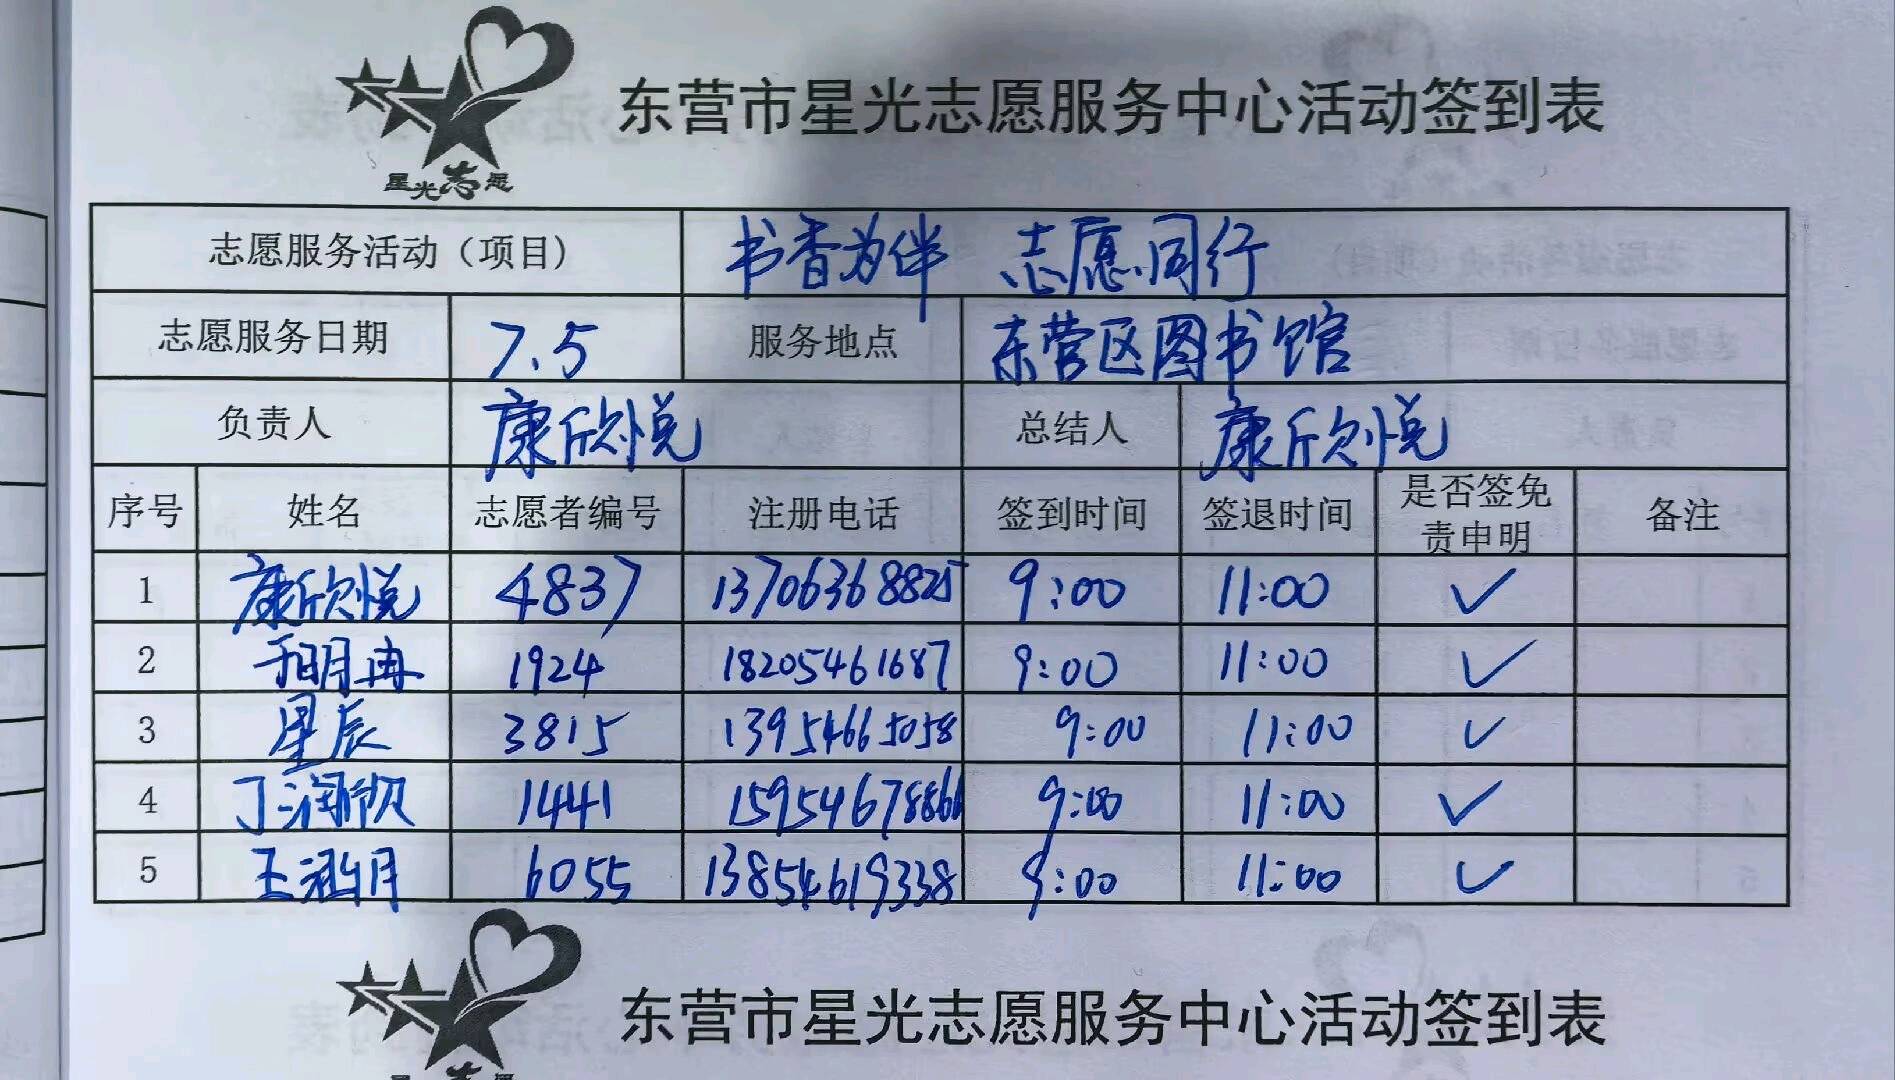 东营市星光志愿服务中心活动签到表
星光志愿
志愿服务活动（项目） 书香为伴 志愿同行
志愿服务日期 7.5 服务地点 东营区图书馆
负责人 康欣悦 总结人 康欣悦
序号 姓名 志愿者编号 注册电话 签到时间 签退时间 是否签免责申明 备注
1 康欣悦 4837 13706368825 9:00 11:00 ✓
2 1924 18205461687 9:00 11:00 ✓
3 星辰 3815 13954665058 9:00 11:00 ✓
4 1441 15954678866 9:00 11:00 ✓
5 王涵月 6055 13854619338 9:00 11:00 ✓
东营市星光志愿服务中心活动签到表